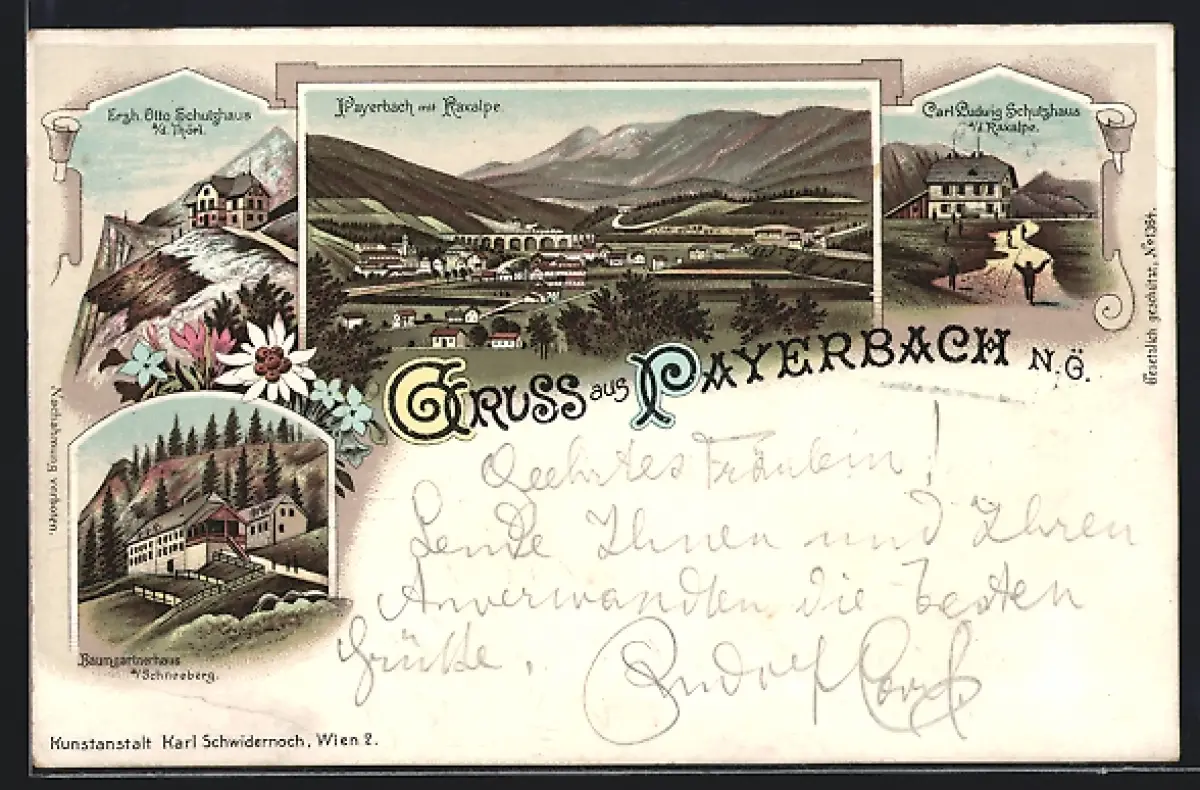 Erzh. Otto Schutzhaus
a/d. Thörl.
Payerbach mit Raxalpe.
Carl Ludwig Schutzhaus
a/d. Raxalpe.
Gesetzlich geschützt, No 1364.
GRUSS aus PAYERBACH N.Ö.
Nachahmung verboten.
Geehrtes Fräulein!
Sende Ihnen und Ihren
Anverwandten die besten
Grüße,
Rudolf
Baumgartnerhaus
a/Schneeberg.
Kunstanstalt Karl Schwidernoch, Wien 2.